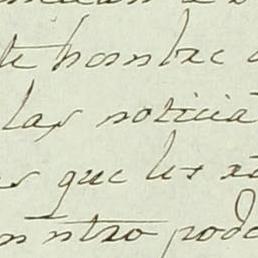 te hombre
las noticia
que les
ntro pod